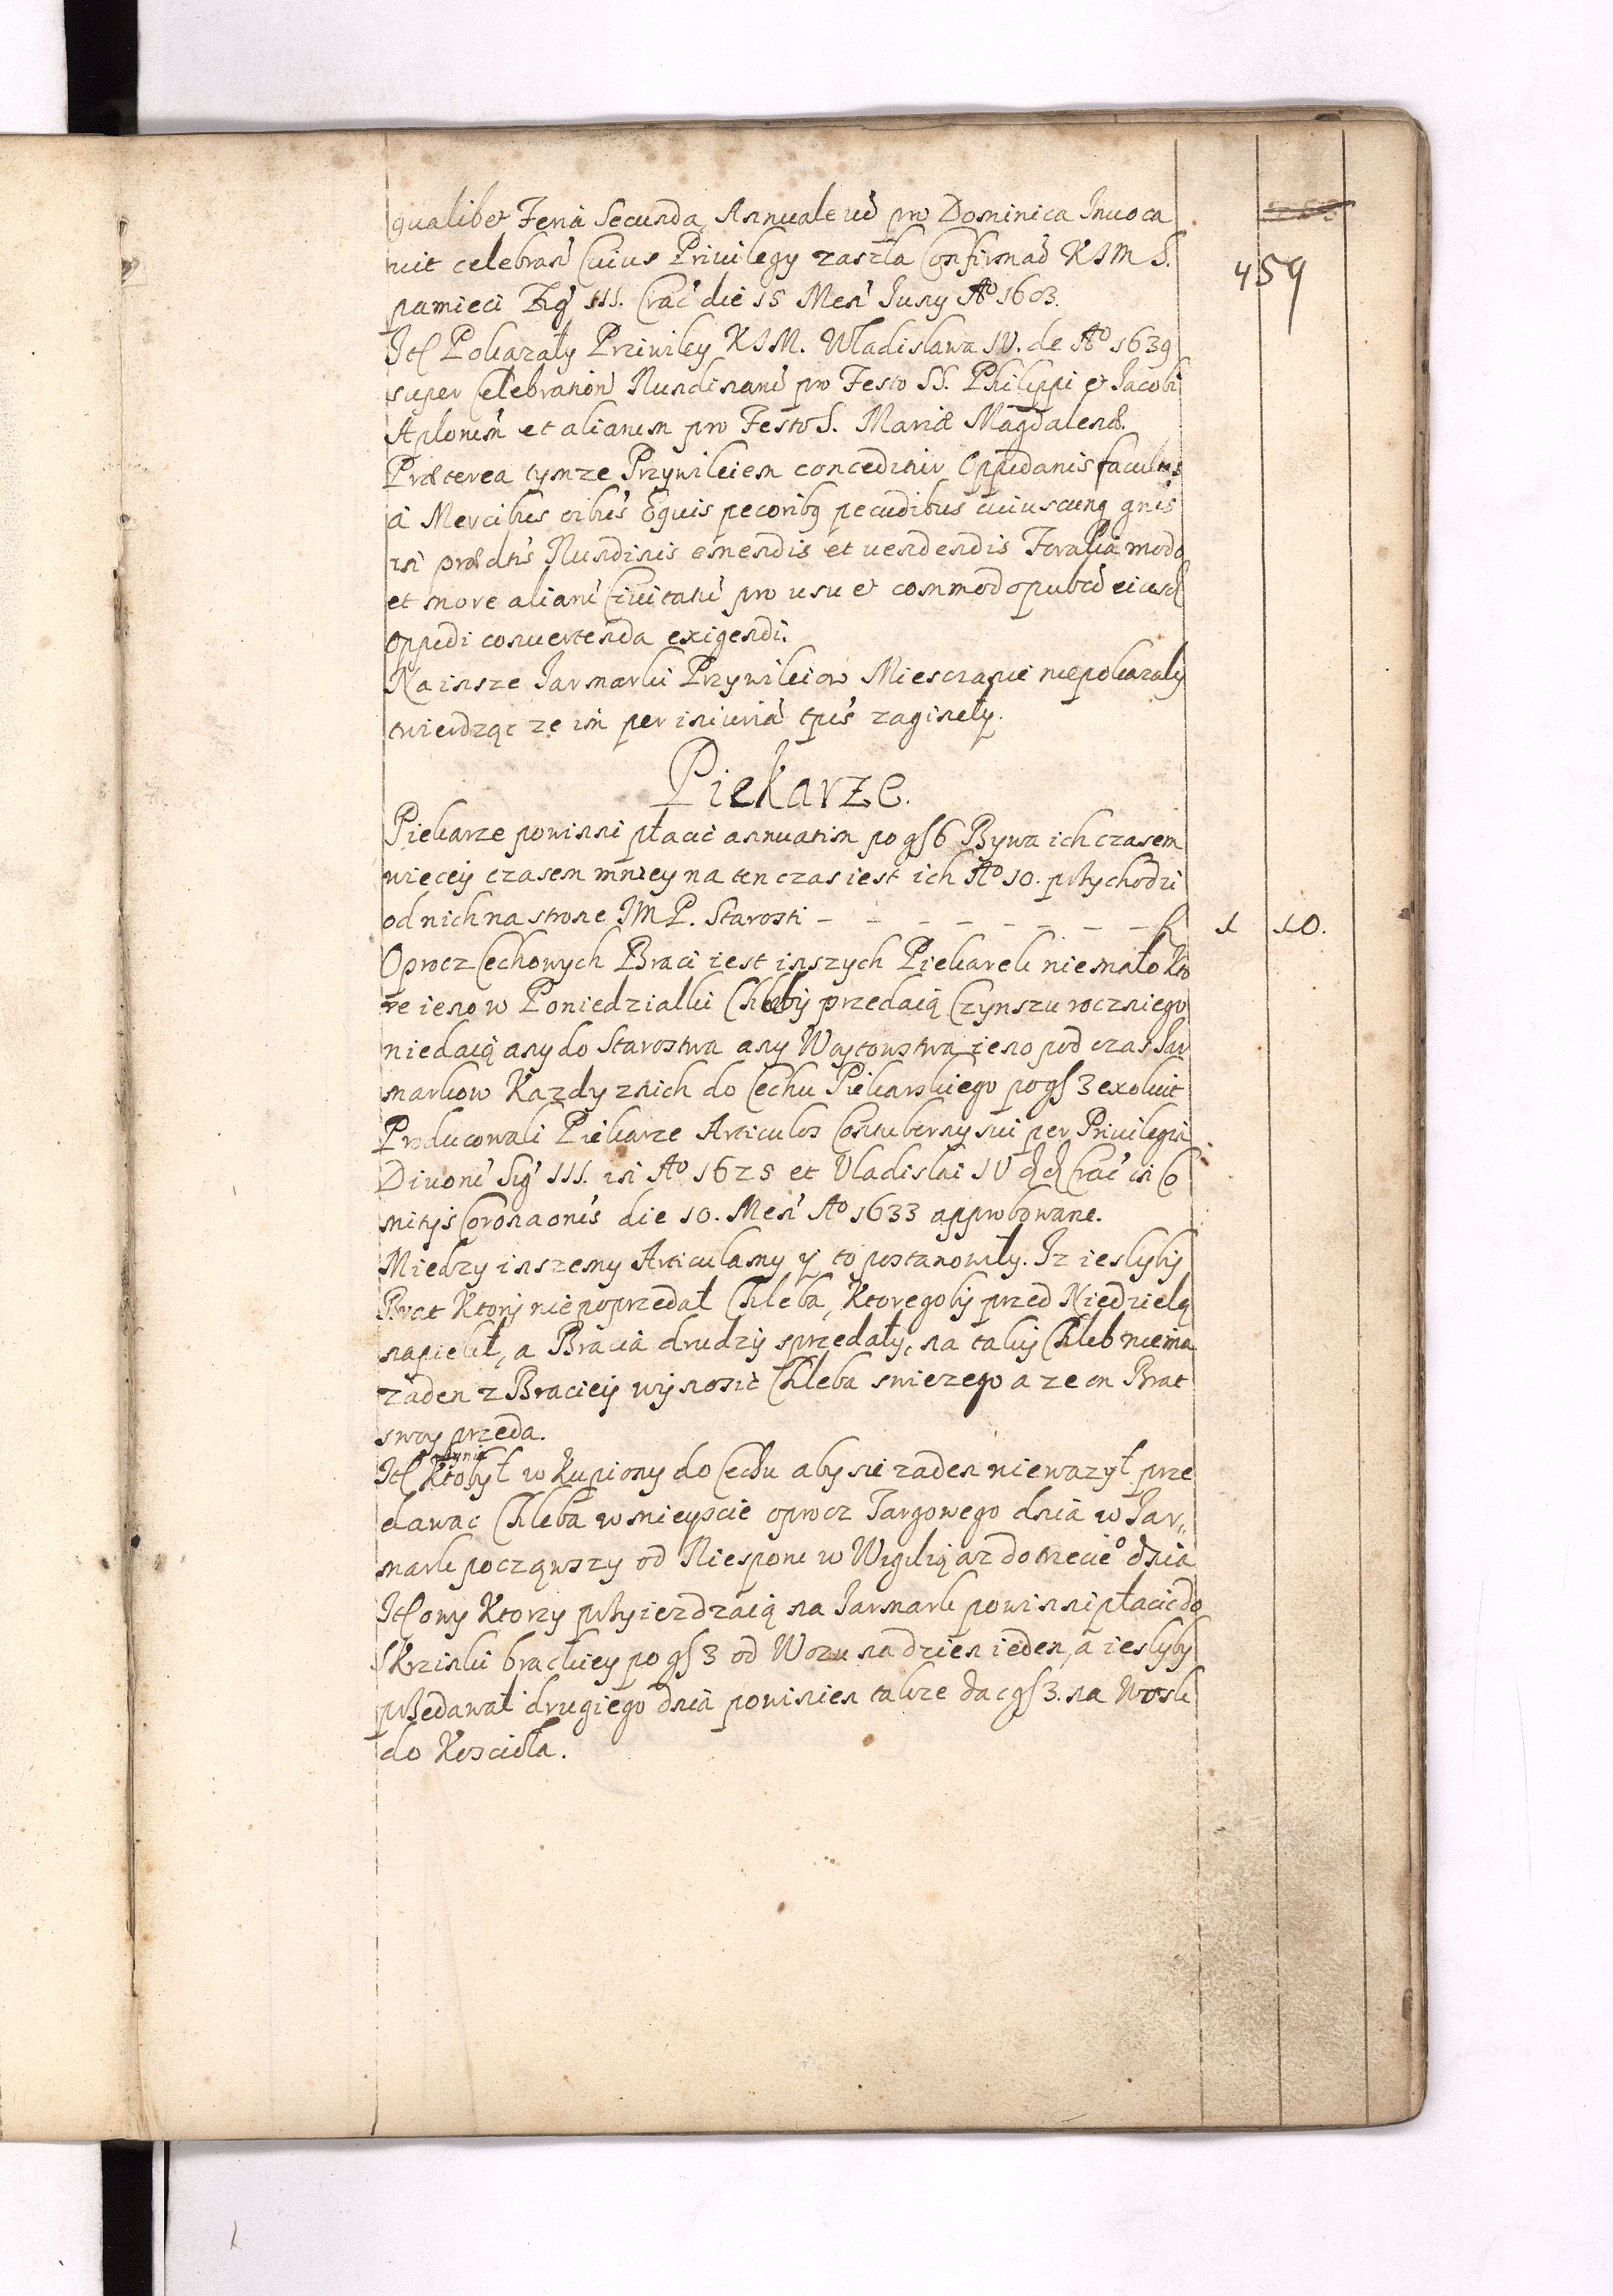 459
qualibet Feria Secunda, Annuale vĕ pro Dominica Invoca
vit celebrań Cuius Privilegy zaszła Confirmaō K I M S.
pamieci Zig' III. Crac' die 15 Men' Juny Aº 1603.
Itē Pokazały Prziwiley K I M. Władisława IV. de Aº 1639
super Celebration' Nundinarū pro Festo SS. Philippi et Jacobi
Aplorum et aliarum pro Festo S. Mariæ Magdalenæ.
Præterea tymze Przywileiem conceditur Oppidanis facultas
à Mercibus oibus Equis pecoribq pecudibus cuiuscunq gnis
in prædtis Nundinis emendis et vendendis Foralia modo
et more aliarū Civitatū pro usu et commodo publo eiusd
oppidi convertenda exigendi.
Na insze Jarmarki Przywileiow Miesczanie niepokazały
twierdząc ze im per iniuriā tpis zagineły.
Piekarze.
Piekarze powinni płacic annuatim po gſ 6 Bywa ich czasem
wiecey czasem mniey na ten czas iest ich Nº 10. przychodzi
od nich na strone JM P. Starosti - - - - - - - f 1 10.
Oprocz Cechowych Braci iest inszych Piekarek niemało Kto
re ieno w Poniedziałki Chleby przedaią Czynszu roczniego
niedaią any do Starostwa any Woytowstwa ieno pod czas Jar
markow Kazdy znich do Cechu Piekarskiego po gſ 3 exoluit
Producowali Piekarze Articulos Contuberny sui per Privilegia
Divorū Sig' III. in Aº 1625 et Vladislai IV Crac' in Co
mitijs Coronaonis die 10. Men' Aº 1633 approbowane.
Miedzy inszemy Articulamy y to postanowiły. Iz iesliby
Brat Ktory niepoprzedał Chleba, Ktoregoby przed Niedzielą
napiekł, a Bracia drudzy sprzedały, na taki Chleb niema
zaden z Braciey wynosic Chleba swiezego aze on Brat
swoy przeda.
Itē Ktobył w kupiony do Cechu aby sie zaden niewazył prze
dawac Chleba w mieyscie oprocz Targowego dnia w Jar„
mark począwszy od Nieszporu w Wigilią az do trzecieº dnia
Itē owy Ktorzy przyiezdzaią na Jarmark powinni płacic do
Skrzinki brackiey po gſ 3 od Wozu na dzien ieden, a iesliby
przedawał drugiego dnia powinien takze dac gſ 3. na Wosk
do Koscioła.